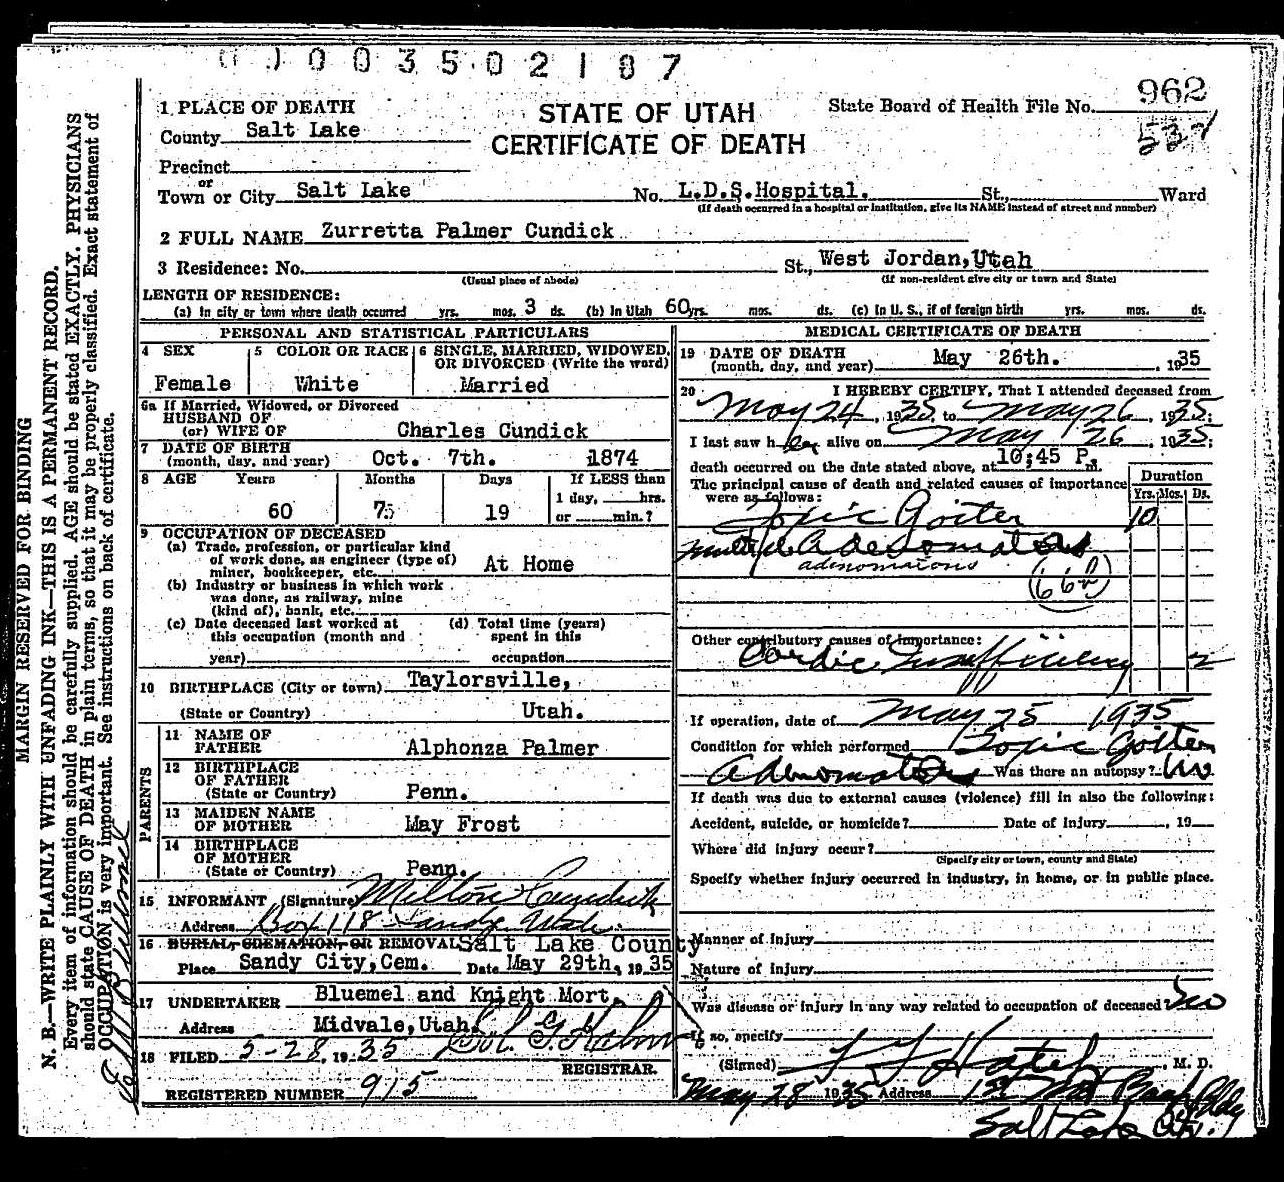 01003502187
962
537
1 PLACE OF DEATH
STATE OF UTAH
CERTIFICATE OF DEATH
State Board of Health File No.
County Salt Lake
Precinct
or
Town or City Salt Lake No. L.D.S. Hospital. St., Ward
(If death occurred in a hospital or institution, give its NAME instead of street and number)
2 FULL NAME Zurretta Palmer Cundick
3 Residence: No. St., West Jordan, Utah
(Usual place of abode) (If non-resident give city or town and State)
LENGTH OF RESIDENCE:
(a) In city or town where death occurred yrs. mos. 3 ds. (b) In Utah 60 yrs. mos. ds. (c) In U. S., if of foreign birth yrs. mos. ds.
PERSONAL AND STATISTICAL PARTICULARS
4 SEX 5 COLOR OR RACE 6 SINGLE, MARRIED, WIDOWED, OR DIVORCED (Write the word)
Female White Married
6a If Married, Widowed, or Divorced
HUSBAND OF
(or) WIFE OF Charles Cundick
7 DATE OF BIRTH
(month, day, and year) Oct. 7th. 1874
8 AGE Years Months Days If LESS than
1 day, hrs.
60 7 19 or min.?
9 OCCUPATION OF DECEASED
(a) Trade, profession, or particular kind
of work done, as engineer (type of)
miner, bookkeeper, etc. At Home
(b) Industry or business in which work
was done, as railway, mine
(kind of), bank, etc.
(c) Date deceased last worked at (d) Total time (years)
this occupation (month and spent in this
year) occupation
10 BIRTHPLACE (City or town) Taylorsville,
(State or Country) Utah.
PARENTS
11 NAME OF
FATHER Alphonza Palmer
12 BIRTHPLACE
OF FATHER
(State or Country) Penn.
13 MAIDEN NAME
OF MOTHER May Frost
14 BIRTHPLACE
OF MOTHER
(State or Country) Penn.
15 INFORMANT (Signature) Milton Cundick
Address Box 118 Sandy Utah.
16 BURIAL, CREMATION, OR REMOVAL Salt Lake County
Place Sandy City, Cem. Date May 29th, 1935
17 UNDERTAKER Bluemel and Knight Mort.
Address Midvale, Utah.
18 FILED 5-28, 1935
REGISTRAR.
REGISTERED NUMBER 915
MEDICAL CERTIFICATE OF DEATH
19 DATE OF DEATH
(month, day, and year) May 26th. , 1935
20 I HEREBY CERTIFY, That I attended deceased from
May 24, 1935 to May 26, 1935;
I last saw her alive on May 26, 1935;
death occurred on the date stated above, at 10:45 P. m.
The principal cause of death and related causes of importance
were as follows:
Duration
Yrs. Mos. Ds.
Toxic Goiter 10
Multiple Adenomatous
adenomatous
66b
Other contributory causes of importance:
Cardic Insufficiency 2
If operation, date of May 25 1935
Condition for which performed Toxic Goiter
Adenomatous Was there an autopsy? No
If death was due to external causes (violence) fill in also the following:
Accident, suicide, or homicide? Date of injury , 19
Where did injury occur?
(Specify city or town, county and State)
Specify whether injury occurred in industry, in home, or in public place.
Manner of injury
Nature of injury
Was disease or injury in any way related to occupation of deceased? No
If so, specify
(Signed) , M. D.
May 28 1935 Address 1st Nat Bank Bldg
Salt Lake City.
MARGIN RESERVED FOR BINDING
N. B.—WRITE PLAINLY WITH UNFADING INK—THIS IS A PERMANENT RECORD.
Every item of information should be carefully supplied. AGE should be stated EXACTLY. PHYSICIANS
should state CAUSE OF DEATH in plain terms, so that it may be properly classified. Exact statement of
OCCUPATION is very important. See instructions on back of certificate.